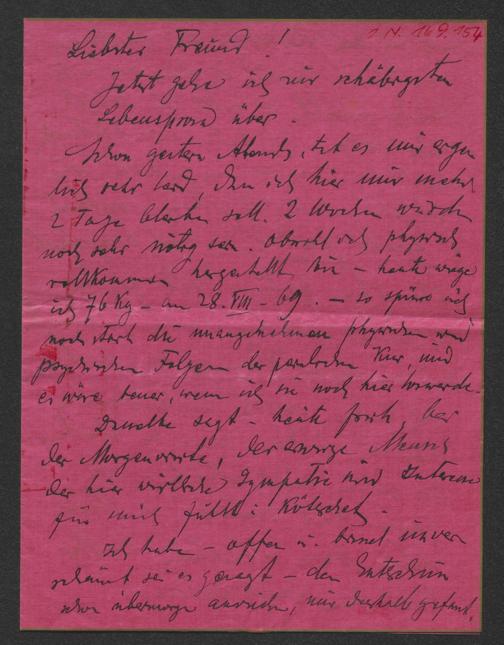 I.N. 169.154
Liebster Freund!
Jetzt gehe ich zur schäbigsten
Lebensform über.
Schon gestern Abends, tat es mir eigen
tlich sehr leid, dass ich hier nur mehr
2 Tage bleiben soll. 2 Wochen würden
noch sehr nötig sein. Obwohl ich physisch
vollkommen hergestellt bin – heute wiege
ich 76 Kg – am 28. VIII – 69. – so spüre ich
noch stark die unangenehmen physischen und
psychischen Folgen der Kur und
es wäre besser, wenn ich sie noch hier loswerde.
Dasselbe sagt – heute früh bei
der Morgenvisite, der einzige Mensch
der hier wirkliche Sympathie und Interesse
für mich fühlt: Kötscher.
Ich habe – offen u. unver
schämt sei es gesagt – den Entschluss
schon übermorgen nur deshalb gefasst,